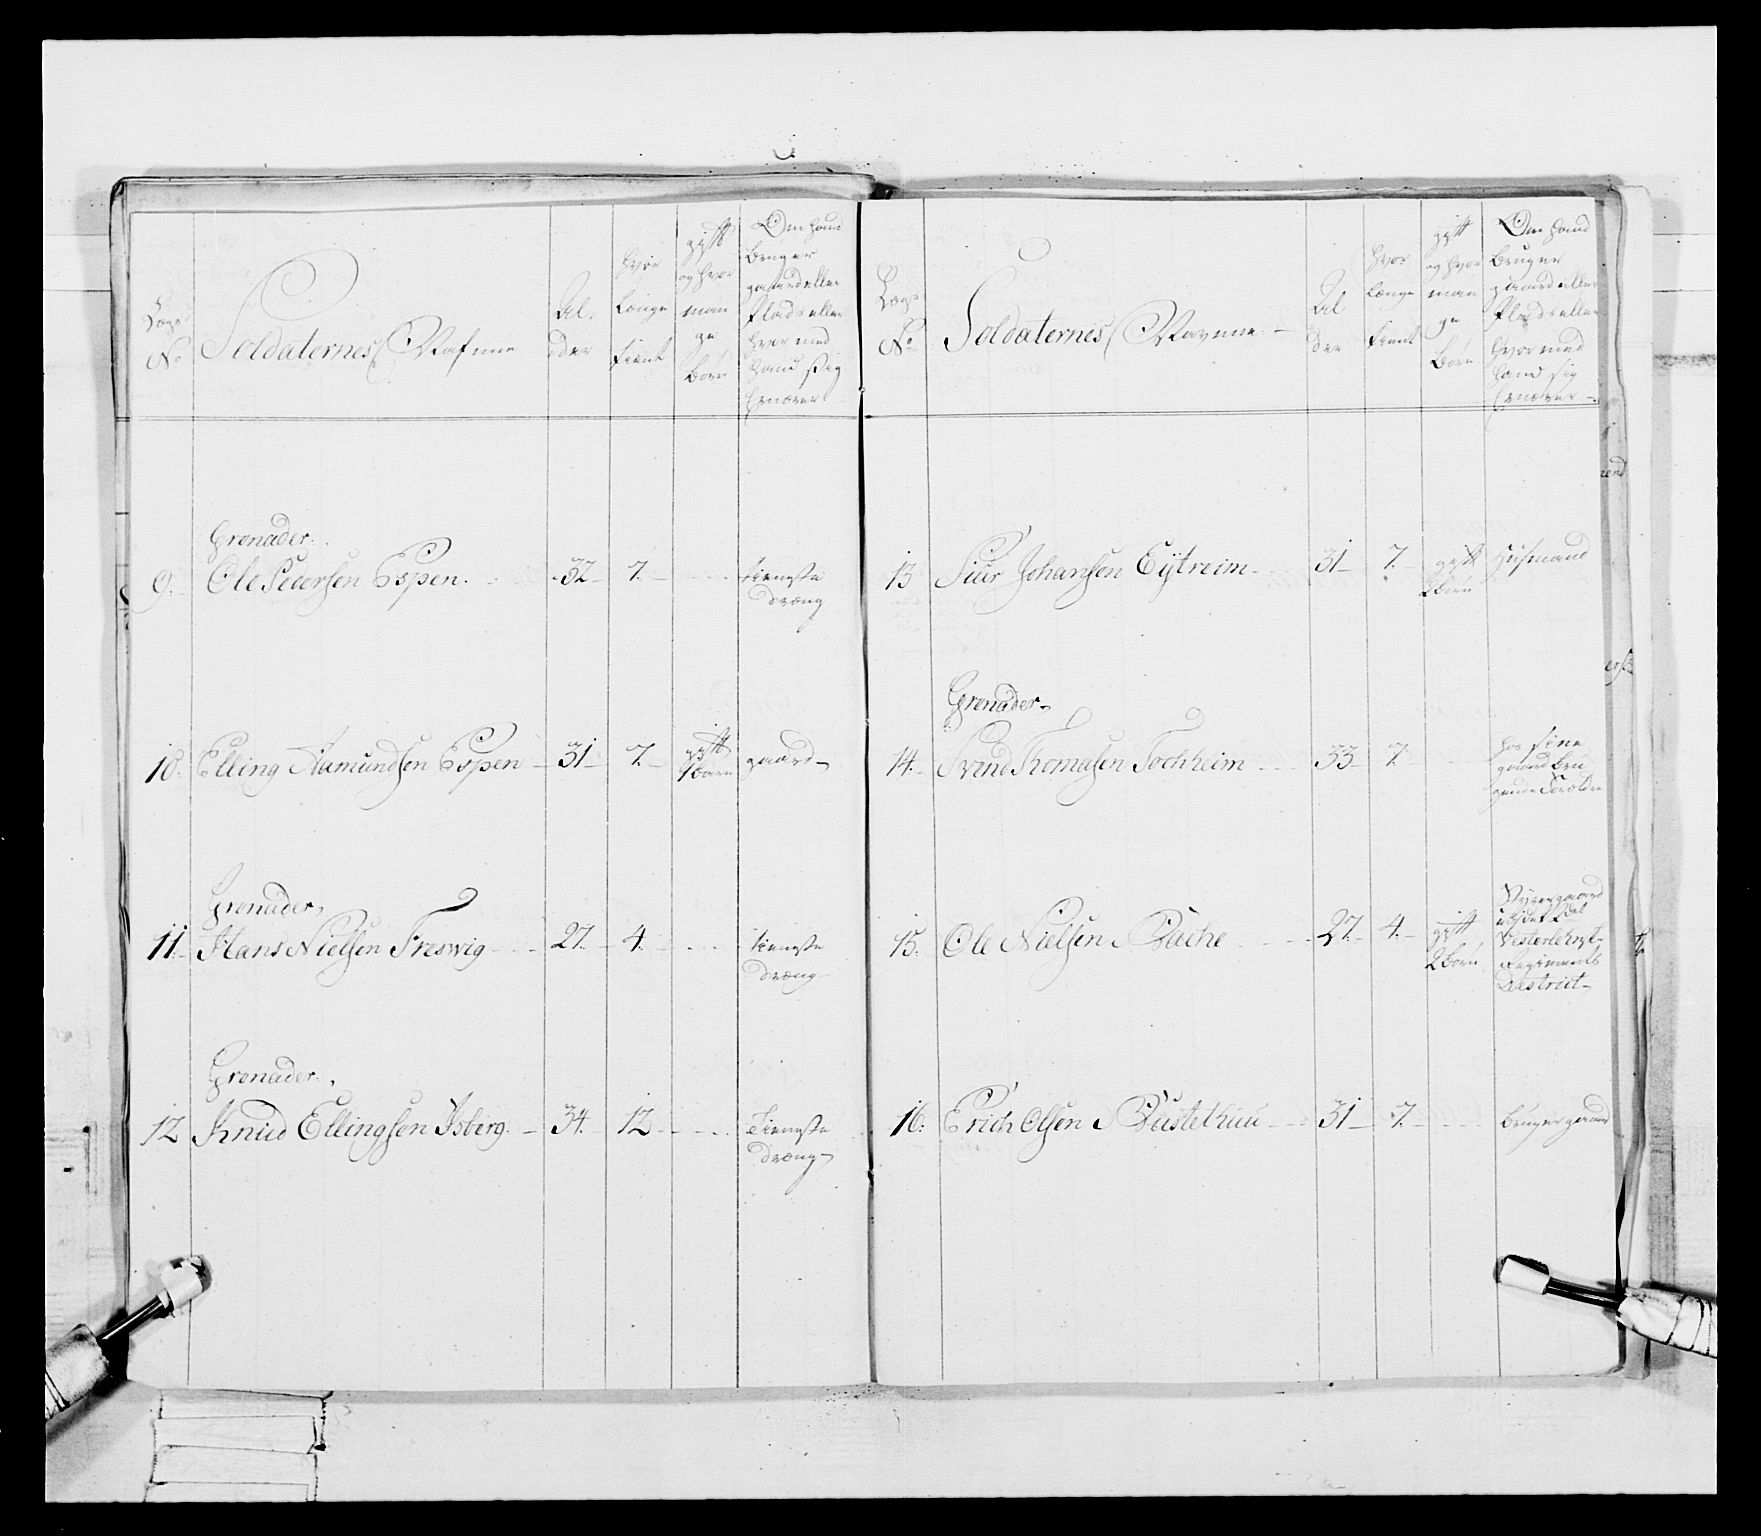 Lægs No
Soldaternes Nafne
Al-
der
hvor
længe
tient
gift
og hvor
man
ge
børn
Om hand
bruger
gaard eller
Plads eller
hvor med
hand sig
Ernærer
Grenader.
9. Ole Pedersen Espen. 32 7. tieneste
dræng
10. Elling Aamundsen Espen 31 7. gift
1 barn gaard
Grenader,
11. Hans Nielsen Freswig 27. 4. tieneste
dræng
Grenader.
12 Knud Ellingsen Isberg. 34. 12 Tieneste
dræng
Lægs No
Soldaternes Navne
Al
der
hvor
længe
tient
gift
og hvor
man
ge
børn
Om hand
bruger
gaard eller
Plads eller
hvor med
hand sig
Ernærer
13 Siur Johansen Eytreim 31 7. gift
2 børn Husmand
Grenader
14. Svend Thomasen Tochheim 33 7. hos sine
gaard bru
gende Foreldre
15. Ole Nielsen Bache 27. 4. gift
2 børn
Vesterlehnst
Regiments
District
16. Erich Olsen Bustethun 31 7. bruger gaard